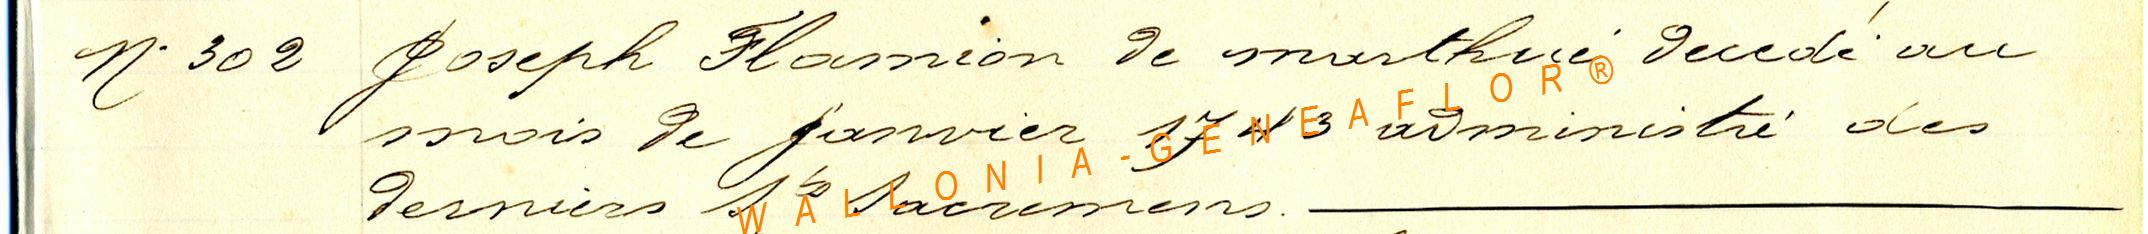 N. 302 Joseph Flamion de marthué decedé au
mois de janvier 1743 administré des
derniers Sts Sacremens.
WALLONIA-GENEAFLOR®